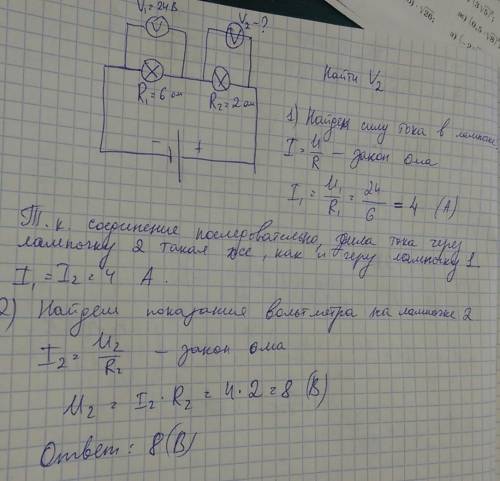 V₁=24В
V₂-?
V
V
R₁=6 ом
R₂=2 ом
- +
Найти V₂
1) Найдем силу тока в лампочке
I = U/R – закон ома
I₁ = U₁/R₁ = 24/6 = 4 (А)
Т.к. соединение последовательно, сила тока через
лампочку 2 такая же, как и через лампочку 1
I₁ = I₂ = 4 А.
2) Найдем показания вольтметра на лампочке 2
I₂ = U₂/R₂ – закон ома
U₂ = I₂·R₂ = 4·2 = 8 (В)
Ответ: 8 (В)